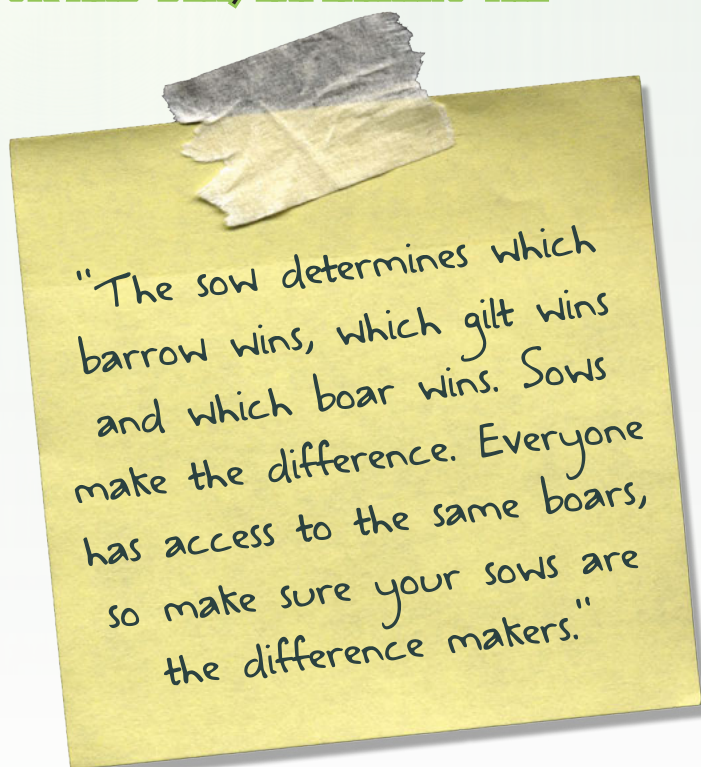 "The sow determines which
barrow wins, which gilt wins
and which boar wins. Sows
make the difference. Everyone
has access to the same boars,
so make sure your sows are
the difference makers."